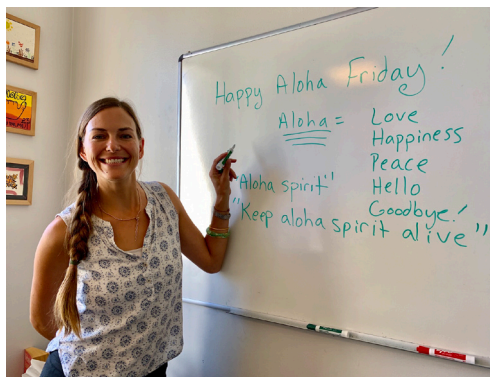 Happy Aloha Friday!
Aloha = Love
Happiness
Peace
Hello
Goodbye!
"Aloha spirit"
"Keep aloha spirit alive"